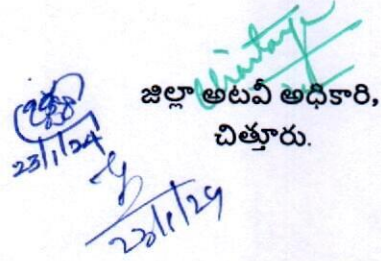 జిల్లా అటవీ అధికారి,
చిత్తూరు.
23/1/24
23/1/24